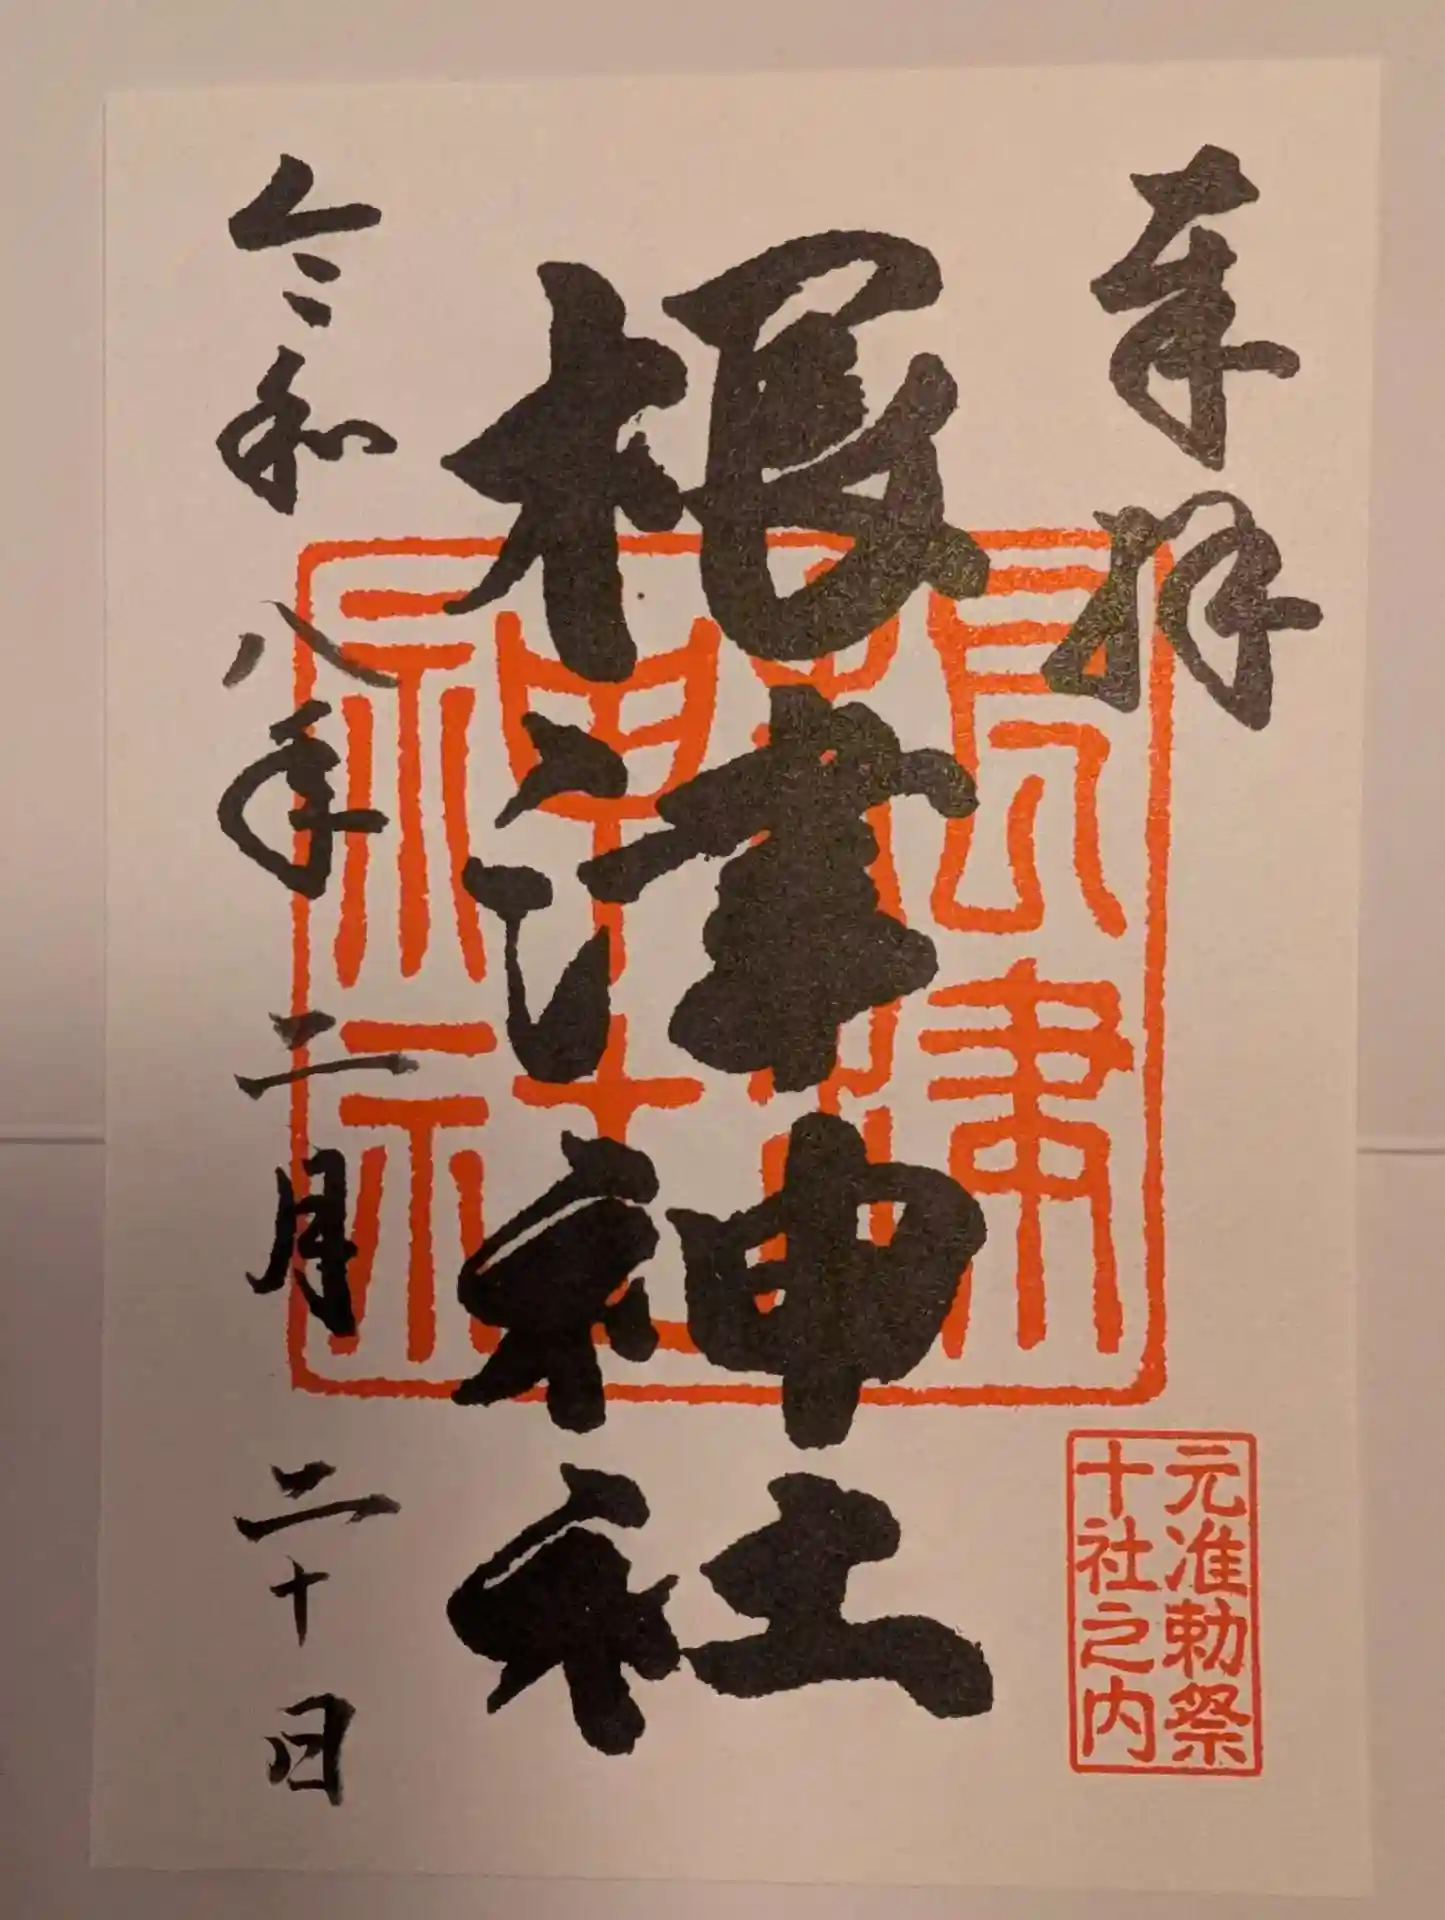 奉拝
根津神社
根津神社
元准勅祭
十社之内
令和八年二月二十日